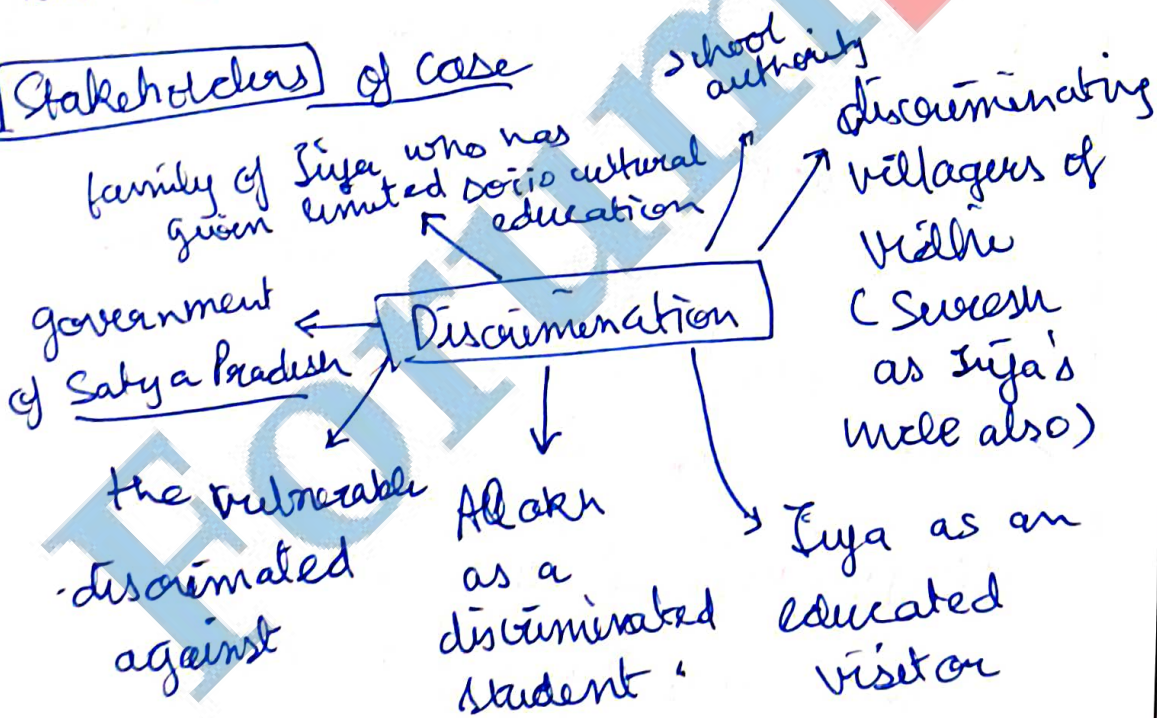 Stakeholders of case
school
authority
family of Jiya who has
given limited socio cultural
education
discriminating
villagers of
vidhi
(Suresh
as Jiya's
uncle also)
government
of Satya Pradesh
Discrimination
the vulnerable
discrimated
against
Alok
as a
discriminated
student
Jiya as an
educated
visitor
Forum